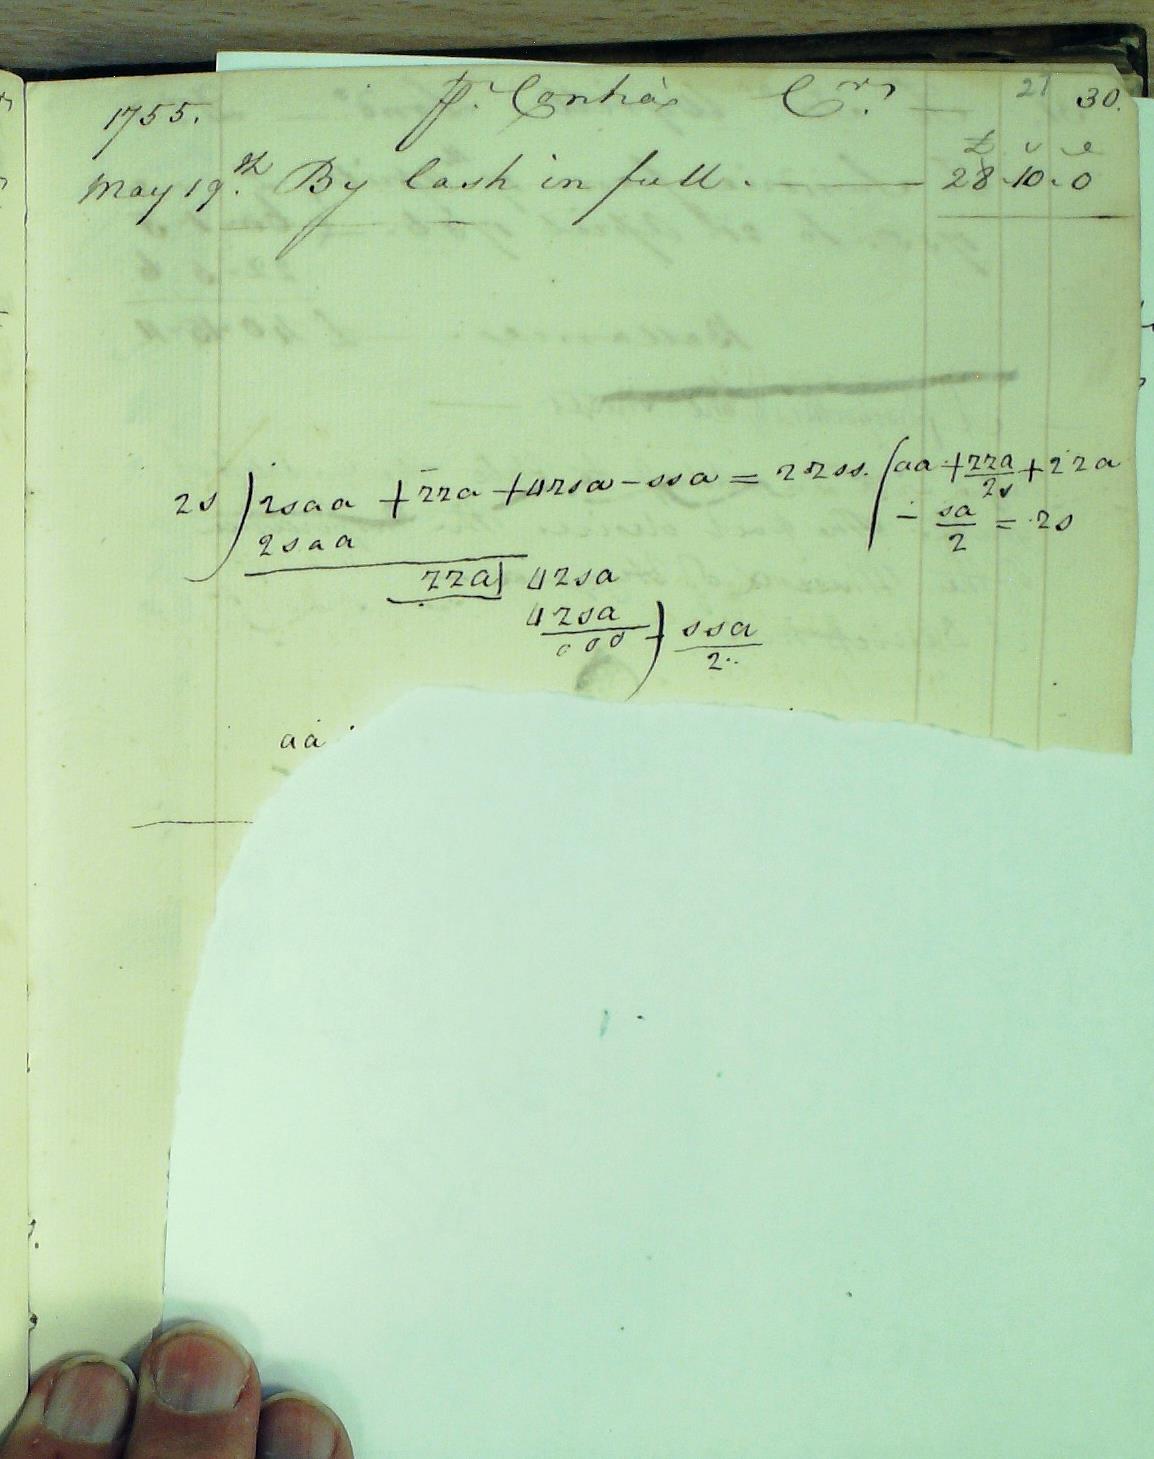 21 30.
1755. P. Contra Cr.
£ s d
May 19th. By Cash in full. 28 . 10 . 0
2s ) 2saa + zza + 4zsa - ssa = 2zss. ( aa + zza/2s + 2za
- sa/2 = zs
2saa
zza| 4zsa
4zsa
000 ) - ssa/2..
aa